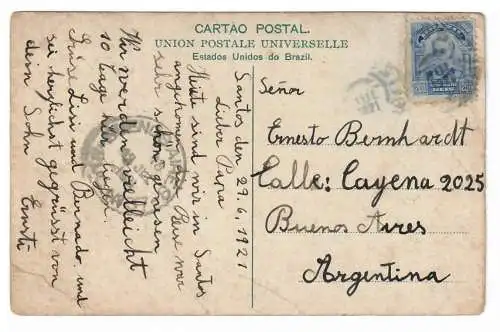 CARTÃO POSTAL.
UNION POSTALE UNIVERSELLE
Estados Unidos do Brazil.
Santos den 29.6.1921
Lieber Papa
Heute sind wir in Santos
angekommen, die Reise war
sehr schön gewesen
Wir werden vielleicht
10 tage hier liegen.
Luise Lisi und Bernado und
sei herzlichst gegrüsst von
dein Sohn
Ernsti
Señor
Ernesto Bernhardt
Calle: Cayena 2025
Buenos Aires
Argentina